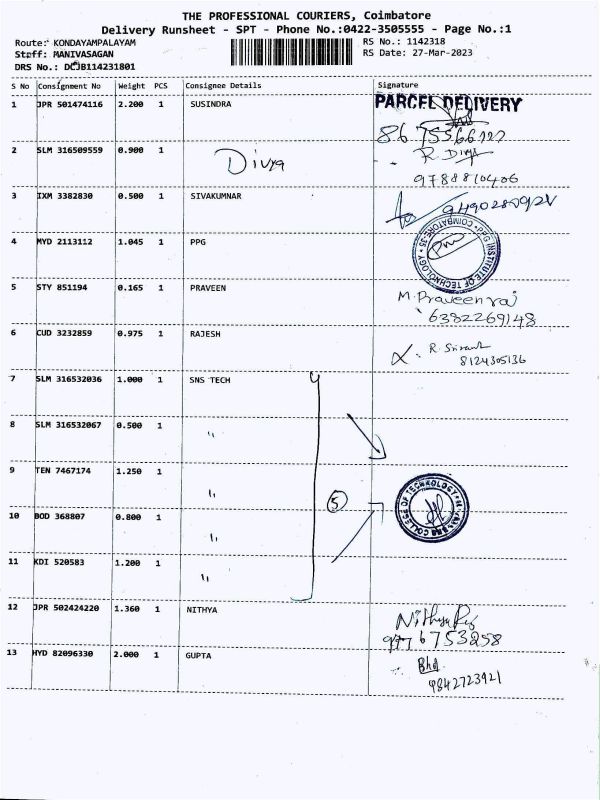 THE PROFESSIONAL COURIERS, Coimbatore
Delivery Runsheet - SPT - Phone No.:0422-3505555 - Page No.:1
Route: KONDAYAMPALAYAM RS No.: 1142318
Staff: MANIVASAGAN RS Date: 27-Mar-2023
DRS No.: DCJB114231801
S No Consignment No Weight PCS Consignee Details Signature
1 JPR 501474116 2.200 1 SUSINDRA PARCEL DELIVERY
2 SLM 316509559 0.900 1 Divya R. Divya
9788810406
3 IXM 3382830 0.500 1 SIVAKUMNAR
4 MYD 2113112 1.045 1 PPG PPG INSTITUTE OF TECHNOLOGY COIMBATORE-35
5 STY 851194 0.165 1 PRAVEEN M. Praveen raj
6382269148
6 CUD 3232859 0.975 1 RAJESH
8124305136
7 SLM 316532036 1.000 1 SNS TECH
8 SLM 316532067 0.500 1 "
9 TEN 7467174 1.250 1 "
5
COLLEGE OF TECHNOLOGY
10 BOD 368807 0.800 1 "
11 KDI 520583 1.200 1 "
12 JPR 502424220 1.360 1 NITHYA
13 HYD 82096330 2.000 1 GUPTA
9842723921